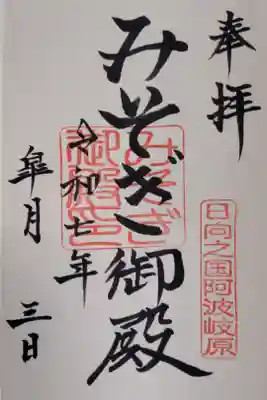 奉拝
みそぎ御殿
令和七年
皐月 三日
みそぎ御殿印
日向之国阿波岐原